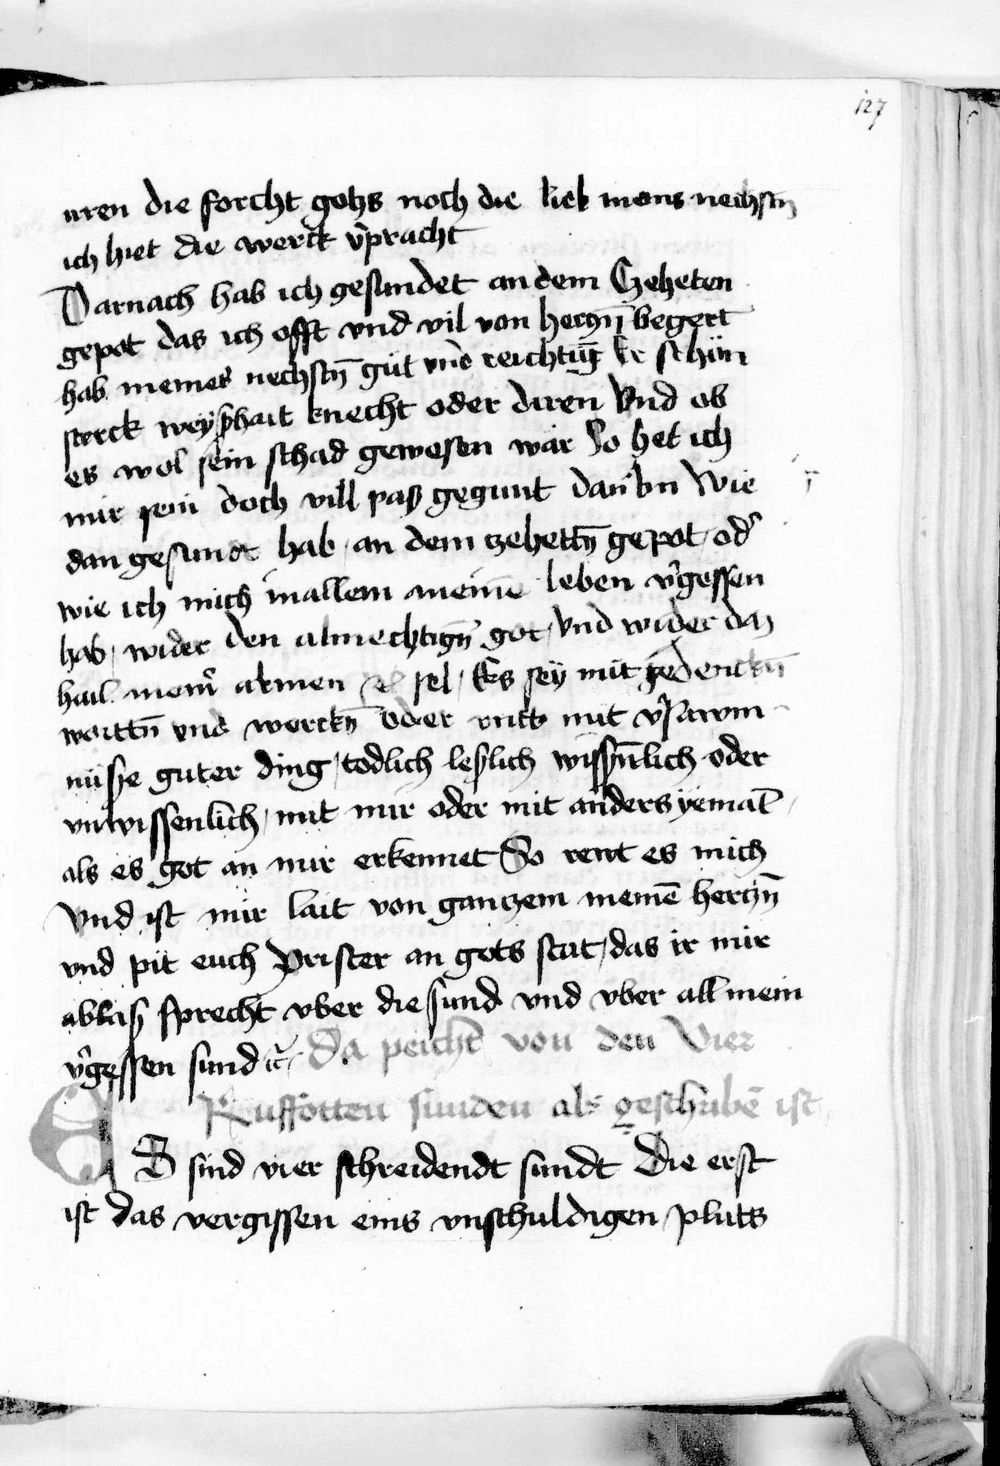 127
uren die forcht gotzs noch die lieb mens nechstn̄
ich hiet die werck v̄pracht
Darnach hab ich gesundet an dem Zeheten
gepot das ich offt vnd vil von herczn̄ begert
hab meines nechstn̄ gut vnd reichtūg Er schön
sterck weyßhait knecht oder diren Vnd ob
es wol sein schad gewesen wär So het ich
mir sein doch vill paß gegunt dan Wie
dan gesundt hab an dem zehettn̄ gepot od̾
wie ich mich in allem meinē leben v̾gessen
hab wider den almechtign̄ got Vnd wider daz
hail mein̾ armen sel Es sey mit gedenckn̄
worttn̄ vnd werckn̄ oder mit v̾sawm
nüße guter ding todlich leslich wissn̄lich oder
vnwissenlich mit mir oder mit anders yemat̄
als es got an mir erkennet So rewt es mich
Vnd ist mir lait von ganczem meinē herczn̄
vnd pit euch Prister an gots stat das ir mir
ablaß sprecht vber die sund vnd vber all mein
v̾gessen sund ꝛc̄ Da peicht von den Vier
Ruffotten sunden als geschribē ist
ES sind vier schreidendt sundt Die erst
ist das vergissen eins vnschuldigen pluts